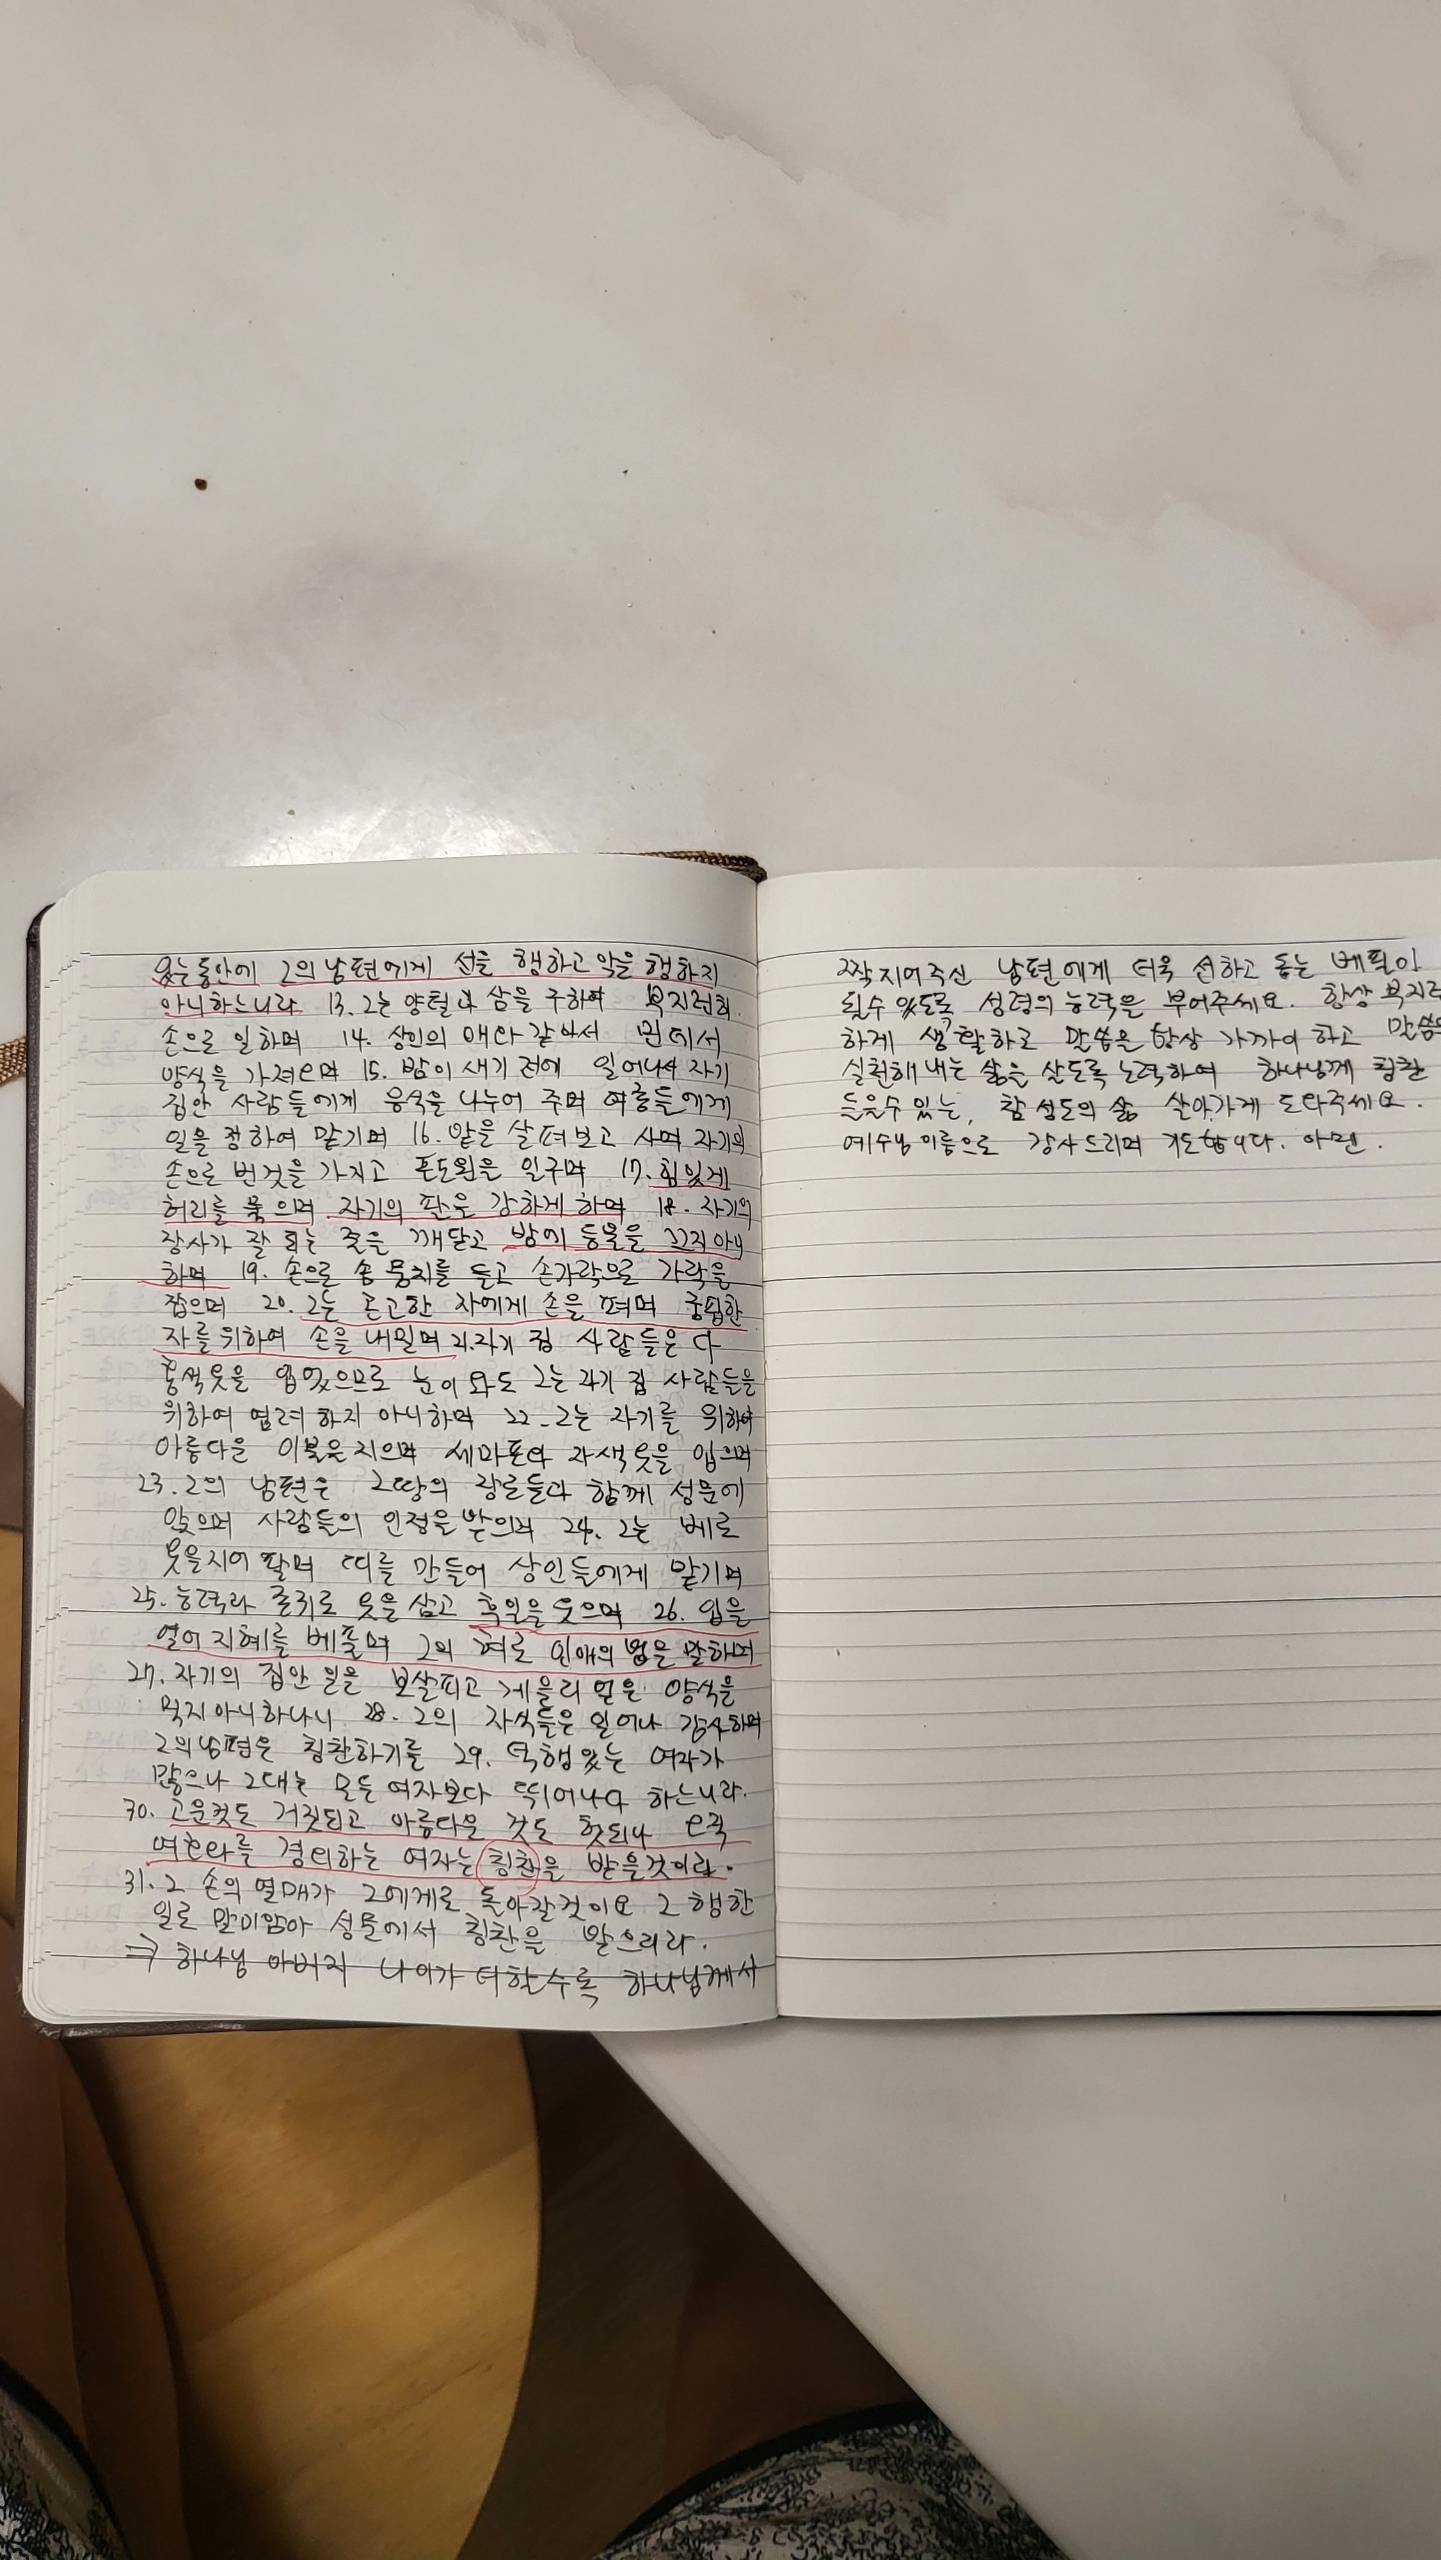 있는동안에 그의 남편에게 선을 행하고 악을 행하지
아니하느니라 13. 그는 양털과 삼을 구하여 부지런히
손으로 일하며 14. 상인의 배와 같아서 먼데서
양식을 가져오며 15. 밤이 새기 전에 일어나서 자기
집안 사람들에게 음식을 나누어 주며 여종들에게
일을 정하여 맡기며 16. 밭을 살펴보고 사며 자기의
손으로 번것을 가지고 포도원을 일구며 17. 힘있게
허리를 묶으며 자기의 팔을 강하게 하며 18. 자기의
장사가 잘 되는 줄을 깨닫고 밤에 등불을 끄지아니
하며 19. 손으로 솜뭉치를 들고 손가락으로 가락을
잡으며 20. 그는 곤고한 자에게 손을 펴며 궁핍한
자를 위하여 손을 내밀며 21. 자기 집 사람들은 다
홍색옷을 입었으므로 눈이 와도 그는 자기 집 사람들을
위하여 염려하지 아니하며 22. 그는 자기를 위하여
아름다운 이불을 지으며 세마포와 자색옷을 입으며
23. 그의 남편은 그땅의 장로들과 함께 성문에
앉으며 사람들의 인정을 받으며 24. 그는 베로
옷을지어 팔며 띠를 만들어 상인들에게 맡기며
25. 능력과 존귀로 옷을 삼고 후일을 웃으며 26. 입을
열어 지혜를 베풀며 그의 혀로 인애의 법을 말하며
27. 자기의 집안 일을 보살피고 게을리 얻은 양식을
먹지아니하나니 28. 그의 자식들은 일어나 감사하며
그의남편은 칭찬하기를 29. 덕행있는 여자가
많으나 그대는 모든 여자보다 뛰어나다 하느니라.
30. 고운것도 거짓되고 아름다운 것도 헛되나 오직
여호와를 경외하는 여자는 칭찬을 받을것이라.
31. 그 손의 열매가 그에게로 돌아갈것이요 그 행한
일로 말미암아 성문에서 칭찬을 받으리라.
⇒ 하나님 아버지 나이가 더할수록 하나님께서
짝지어주신 남편에게 더욱 선하고 돕는 베필이
될수 있도록 성령의 능력을 부어주세요. 항상 부지런
하게 생활하고 말씀을 항상 가까이 하고 말씀을
실천해 내는 삶을 살도록 노력하여 하나님께 칭찬
들을수 있는, 참 성도의 삶 살아가게 도와주세요.
예수님 이름으로 감사드리며 기도합니다. 아멘.